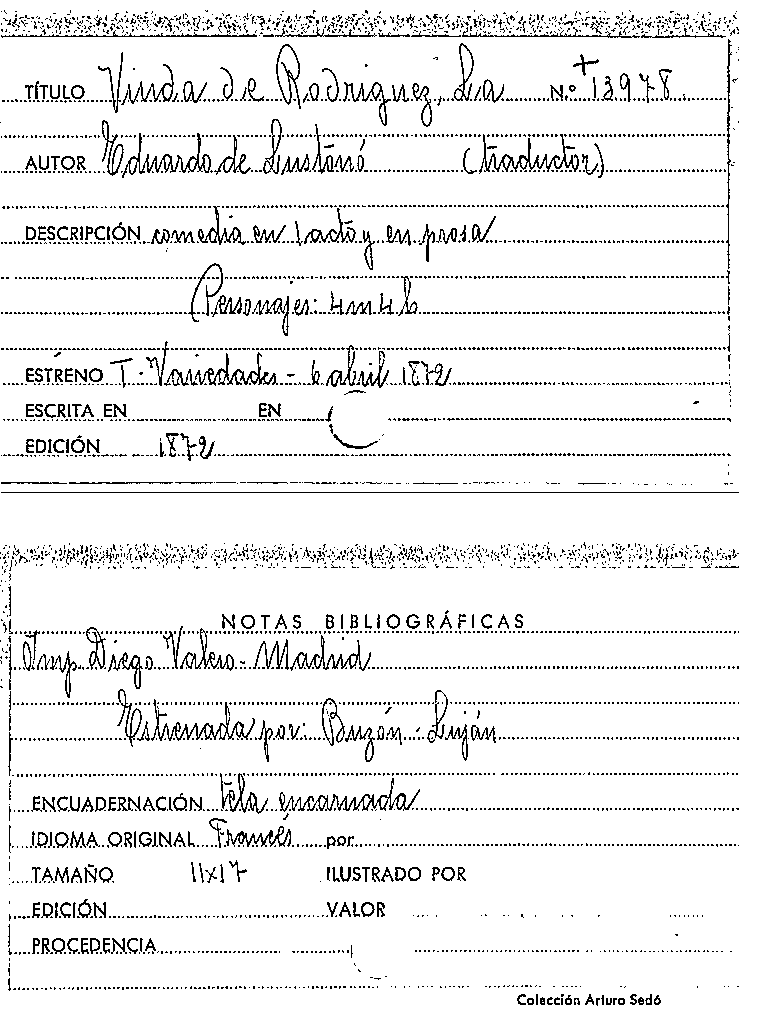 TÍTULO Viuda de Rodriguez, La N.º +13978
AUTOR Eduardo de Lustonó (traductor)
DESCRIPCIÓN comedia en 1 acto y en prosa
Personajes: 4 m 4 h
ESTRENO T. Variedades - 6 abril 1872
ESCRITA EN EN
EDICIÓN 1872
NOTAS BIBLIOGRÁFICAS
Imp. Diego Valero - Madrid
Estrenada por: Buzón - Luján
ENCUADERNACIÓN tela encarnada
IDIOMA ORIGINAL Francés por
TAMAÑO 11x17 ILUSTRADO POR
EDICIÓN VALOR
PROCEDENCIA
Colección Arturo Sedó